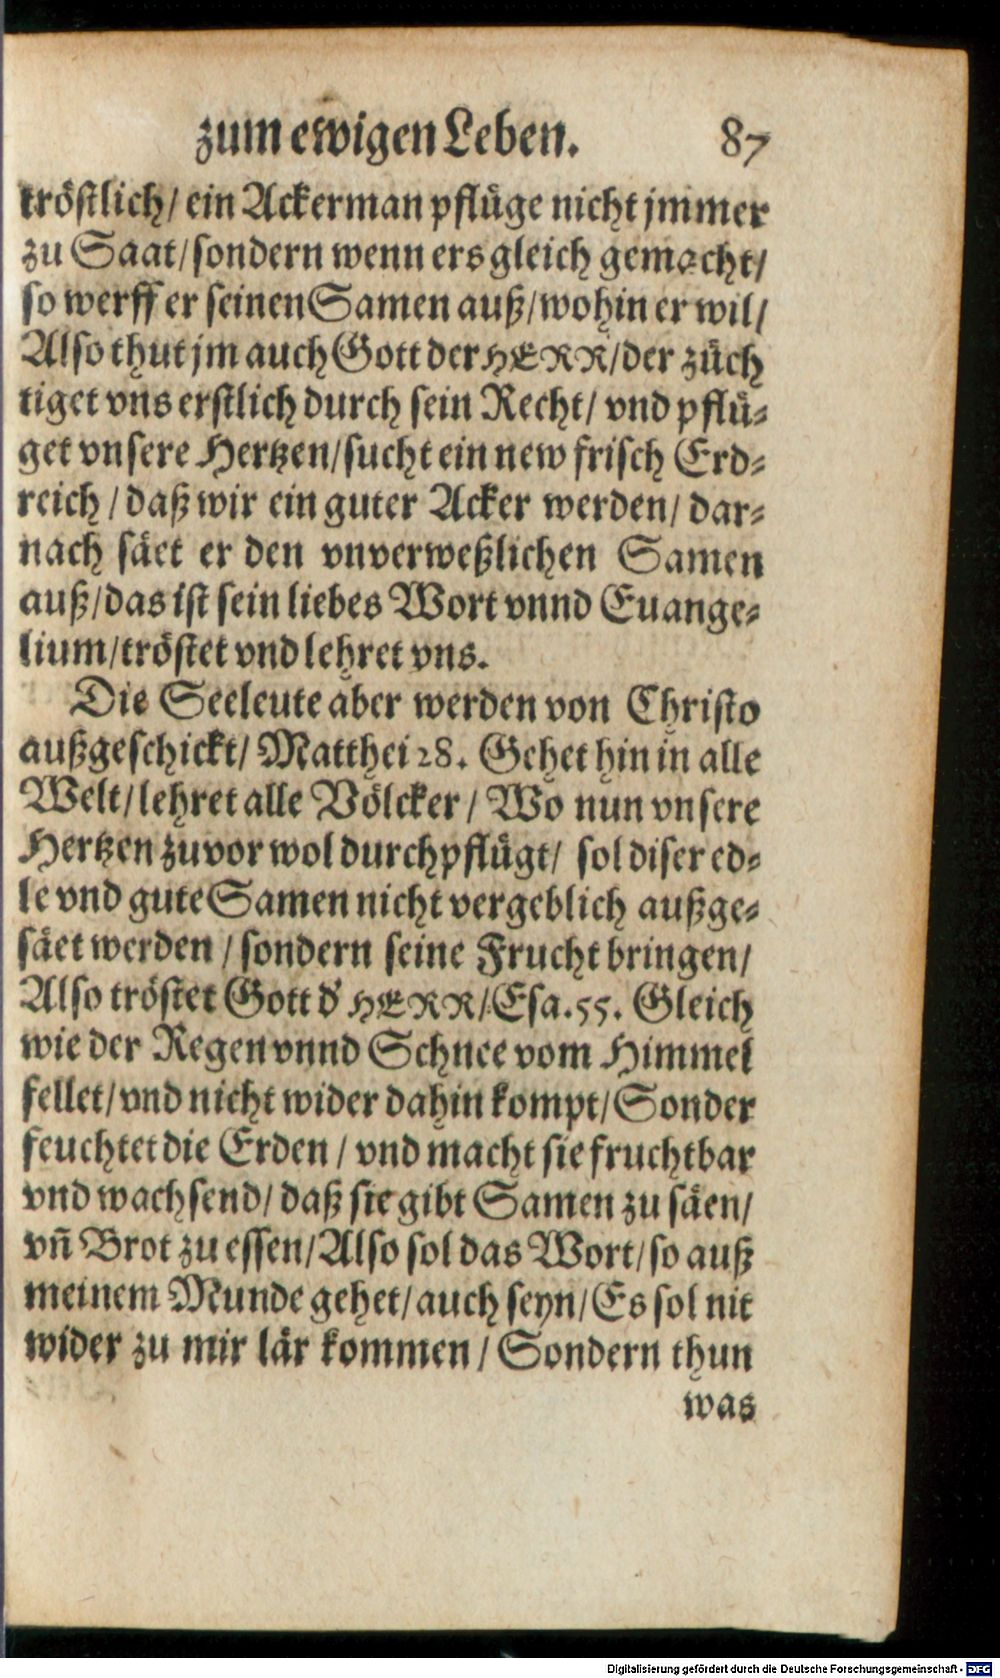 zum ewigen Leben. 87
tröstlich/ ein Ackerman pflüge nicht jmmer
zu Saat/ sondern wenn ers gleich gemacht/
so werff er seinen Samen auß/ wohin er wil/
Also thut jm auch Gott der HERR/ der züch
tiget vns erstlich durch sein Recht/ vnd pflü-
get vnsere Hertzen/ sucht ein new frisch Erd-
reich/ daß wir ein guter Acker werden/ dar-
nach säet er den vnverweßlichen Samen
auß/ das ist sein liebes Wort vnnd Euange-
lium/ tröstet vnd lehret vns.
Die Seeleute aber werden von Christo
außgeschickt/ Matthei 28. Gehet hin in alle
Welt/ lehret alle Völcker/ Wo nun vnsere
Hertzen zuvor wol durchpflügt/ sol diser ed-
le vnd gute Samen nicht vergeblich außge-
säet werden/ sondern seine Frucht bringen/
Also tröstet Gott d' HERR/ Esa. 55. Gleich
wie der Regen vnnd Schnee vom Himmel
fellet/ vnd nicht wider dahin kompt/ Sonder
feuchtet die Erden/ vnd macht sie fruchtbar
vnd wachsend/ daß sie gibt Samen zu säen/
vñ Brot zu essen/ Also sol das Wort/ so auß
meinem Munde gehet/ auch seyn/ Es sol nit
wider zu mir lär kommen/ Sondern thun
was
Digitalisierung gefördert durch die Deutsche Forschungsgemeinschaft - DFG